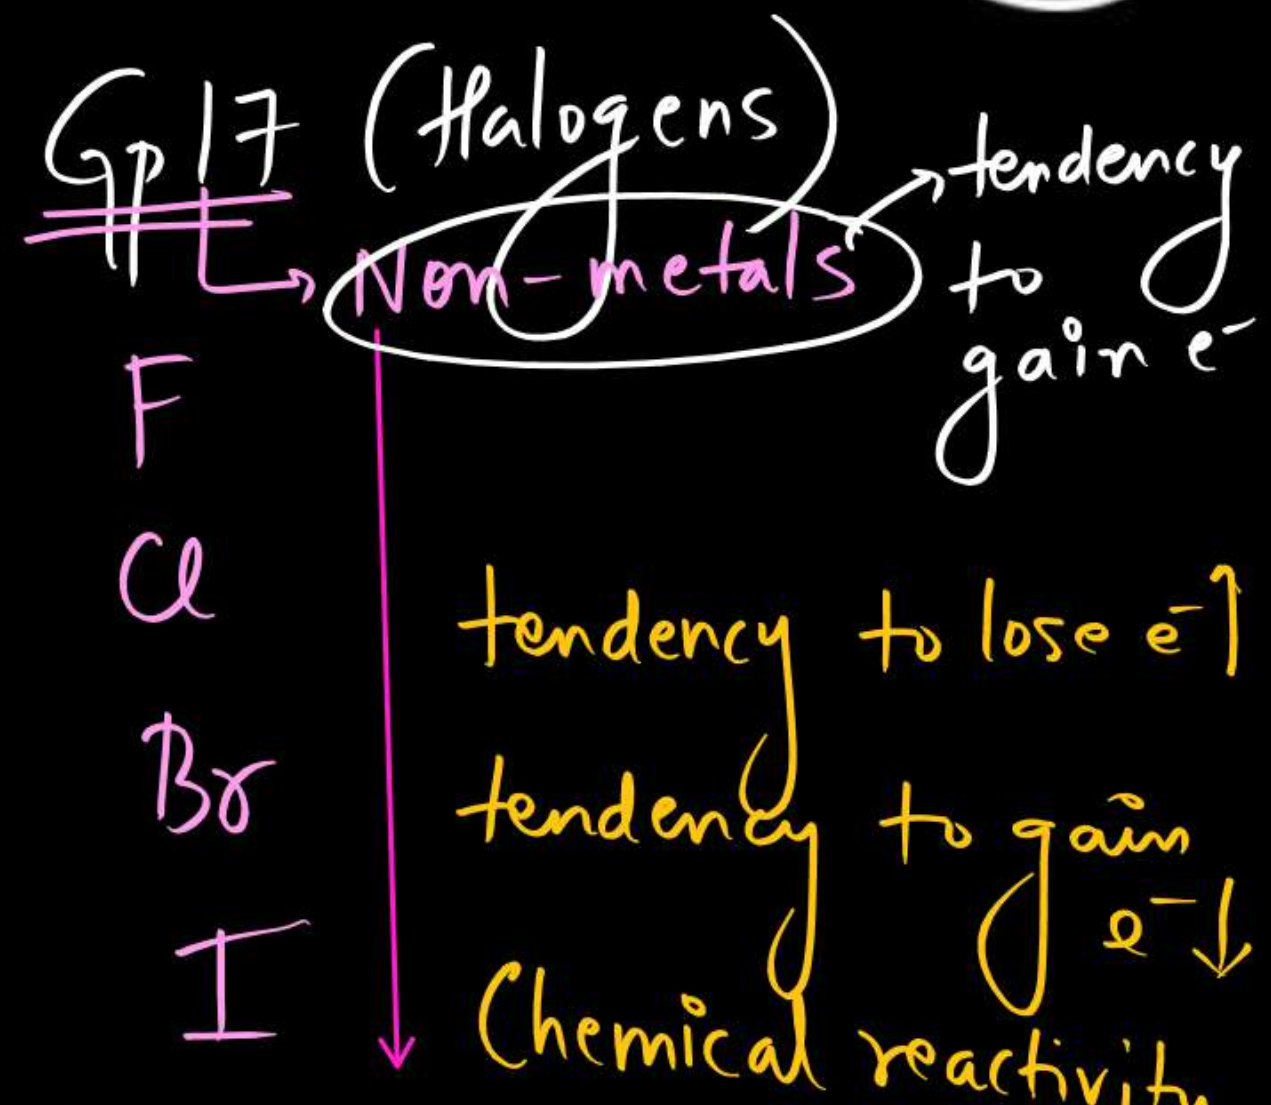 Gp 17 (Halogens)
Non-metals
tendency
to
gain e⁻
F
Cl
Br
I
tendency to lose e⁻↑
tendency to gain
e⁻↓
Chemical reactivity